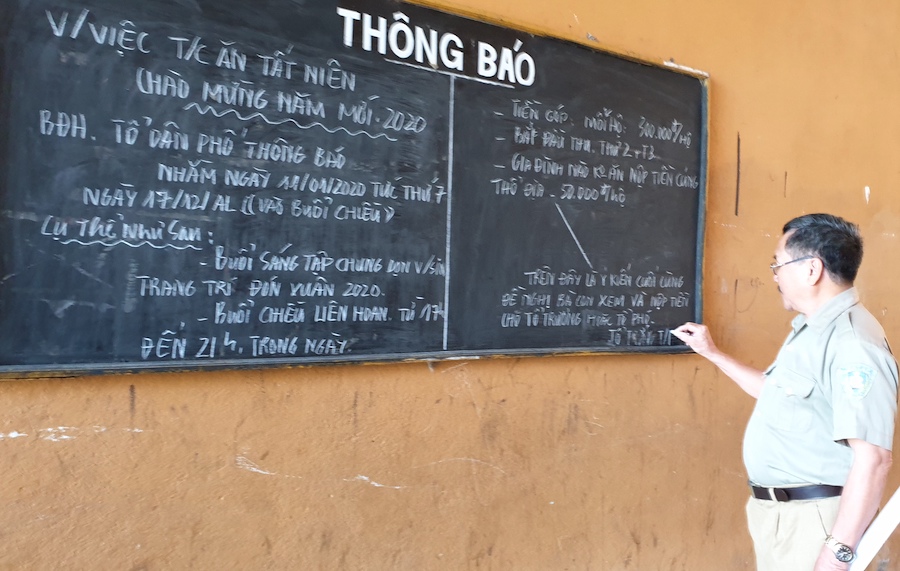 THÔNG BÁO
V/VIỆC T/C ĂN TẤT NIÊN
CHÀO MỪNG NĂM MỚI. 2020
BĐH. TỔ DÂN PHỐ THÔNG BÁO
NHẰM NGÀY 11/01/2020 TỨC THỨ 7
NGÀY 17/12/AL (VÀO BUỔI CHIỀU)
CỤ THỂ NHƯ SAU:
- BUỔI SÁNG TẬP CHUNG DỌN V/SIN
TRANG TRÍ ĐÓN XUÂN 2020.
- BUỔI CHIỀU LIÊN HOAN. TỪ 17h
ĐẾN 21h, TRONG NGÀY.
- TIỀN GÓP. MỖI HỘ: 300.000đ/HỘ
- BẮT ĐẦU THU. THỨ 2 + T3
- GIA ĐÌNH NÀO KO ĂN NỘP TIỀN CÚNG
THỔ ĐỊA. 50.000đ/HỘ
TRÊN ĐÂY LÀ Ý KIẾN CUỐI CÙNG
ĐỀ NGHỊ BÀ CON XEM VÀ NỘP TIỀN
CHO TỔ TRƯỞNG HOẶC TỔ PHÓ.
TỔ TRƯỞNG